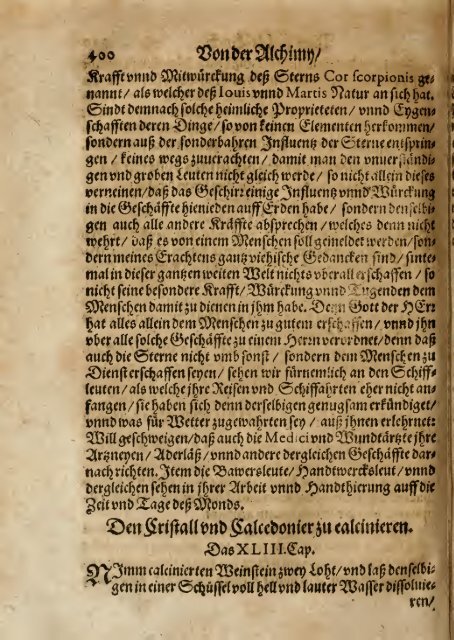 400 Von der Alchimy/
Krafft vnnd Mitwürckung deß Sterns Cor scorpionis ge⸗
nannt/ als welcher deß Iouis vnnd Martis Natur an sich hat.
Sindt demnach solche heimliche Proprieteten/ vnnd Eygen⸗
schafften deren Dinge/ so von keinen Elementen herkommen/
sondern auß der sonderbahren Influentz der Sterne entsprin⸗
gen/ keines wegs zuuerachten/ damit man den vnuerständi⸗
gen vnd groben Leuten nicht gleich werde/ so nicht allein dieses
verneinen/ daß das Geschirr einige Influentz vnnd Würckung
in die Geschäffte hienieden auff Erden habe/ sondern denselbi⸗
gen auch alle andere Kräffte absprechen/ welches denn nicht
wehrt/ daß es von einem Menschen soll gemeldet werden/ son⸗
dern meines Erachtens gantz viehische Gedancken sind/ sinte⸗
mal in dieser gantzen weiten Welt nichts vberall erschaffen/ so
nicht seine besondere Krafft/ Würckung vnnd Tugenden dem
Menschen damit zu dienen in jhm habe. Denn Gott der HErr
hat alles allein dem Menschen zu gutem erschaffen/ vnnd jhn
vber alle solche Geschäffte zu einem Herrn verordnet/ denn daß
auch die Sterne nicht vmb sonst/ sondern dem Menschen zu
Dienst erschaffen seyen/ sehen wir fürnemlich an den Schiff⸗
leuten/ als welche jhre Reisen vnd Schiffahrten eher nicht an⸗
fangen/ sie haben sich denn derselbigen genugsam erkündiget/
vnnd was für Wetter zugewahrten sey/ auß jhnen erlehrnet:
Will geschweigen/ daß auch die Medici vnd Wundtärtzte jhre
Artzneyen/ Aderläß/ vnnd andere dergleichen Geschäffte dar⸗
nach richten. Item die Bawersleute/ Handtwercksleut/ vnnd
dergleichen sehen in jhrer Arbeit vnnd Handthierung auff die
Zeit vnd Tage deß Monds.
Den Cristall vnd Calcedonier zu calcinieren.
Das XLIII. Cap.
NImm calcinierten Weinstein zwey Loht/ vnd laß denselbi⸗
gen in einer Schüssel voll hell vnd lauter Wasser dissoluie⸗
ren/